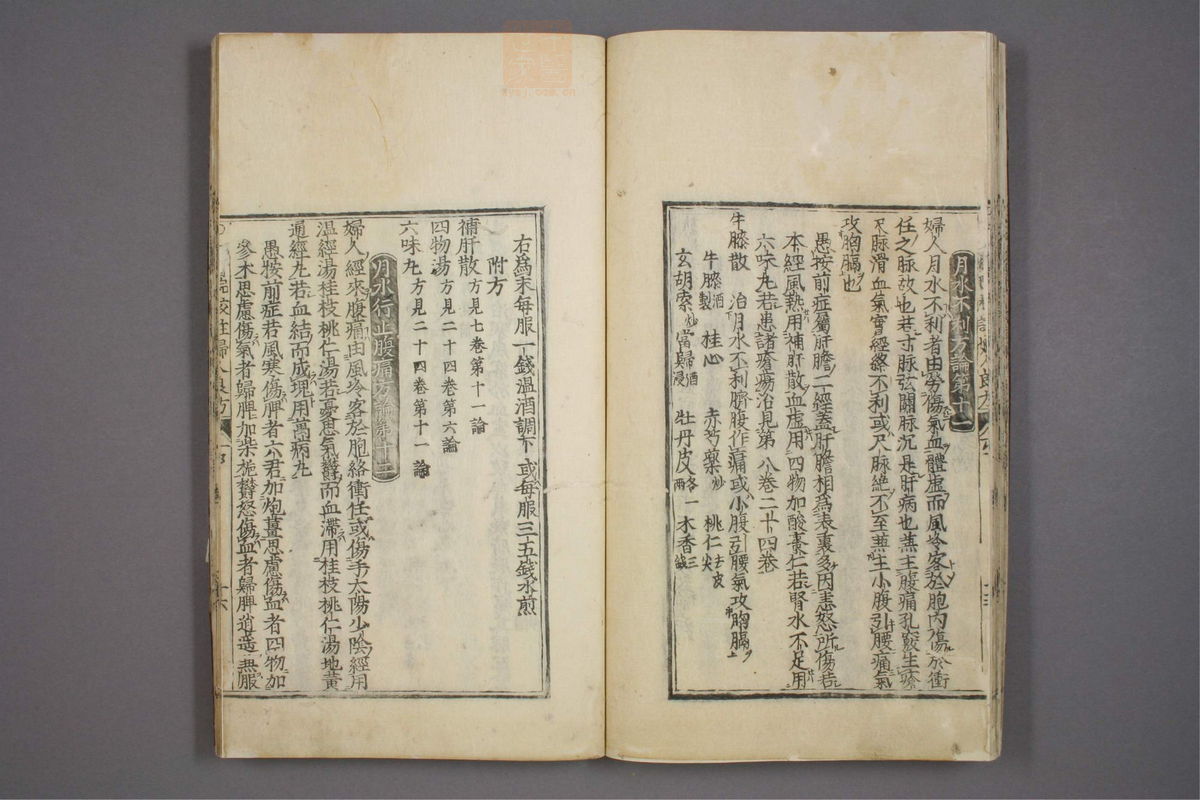 月水不利方論第十二
婦人月水不利者由勞傷氣血體虛而風冷客於胞內傷於衝
任之脉故也若寸脉弦關脉沉是肝病也兼主腹痛孔竅生瘡
尺脉滑血氣實經絡不利或尺脉絶不至兼主小腹引腰痛氣
攻胸膈也
愚按前症屬肝膽二經蓋肝膽相爲表裏多因恚怒所傷若
本經風熱用補肝散血虛用四物加酸棗仁若腎水不足用
六味丸若患諸瘡瘍治見第八卷二十四卷
牛膝散 治月水不利臍腹作痛或小腹引腰氣攻胸膈
牛膝酒製 桂心 赤芍藥炒 桃仁去皮尖
玄胡索炒 當歸酒浸 牡丹皮各一兩 木香三錢
右爲末每服一錢溫酒調下或每服三五錢水煎
附方
補肝散方見七卷第十一論
四物湯方見二十四卷第六論
六味丸方見二十四卷第十一論
月水行止腹痛方論第十三
婦人經來腹痛由風冷客於胞絡衝任或傷手太陽少陰經用
溫經湯桂枝桃仁湯若憂思氣鬱而血滯用桂枝桃仁湯地黃
通經丸若血結而成塊用萬病丸
愚按前症若風寒傷脾者六君加炮薑思慮傷血者四物加
參朮思慮傷氣者歸脾加柴梔鬱怒傷血者歸脾逍遙兼服